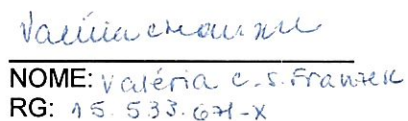 NOME: Valéria C.S. Franzek
RG: 15.533.671-X